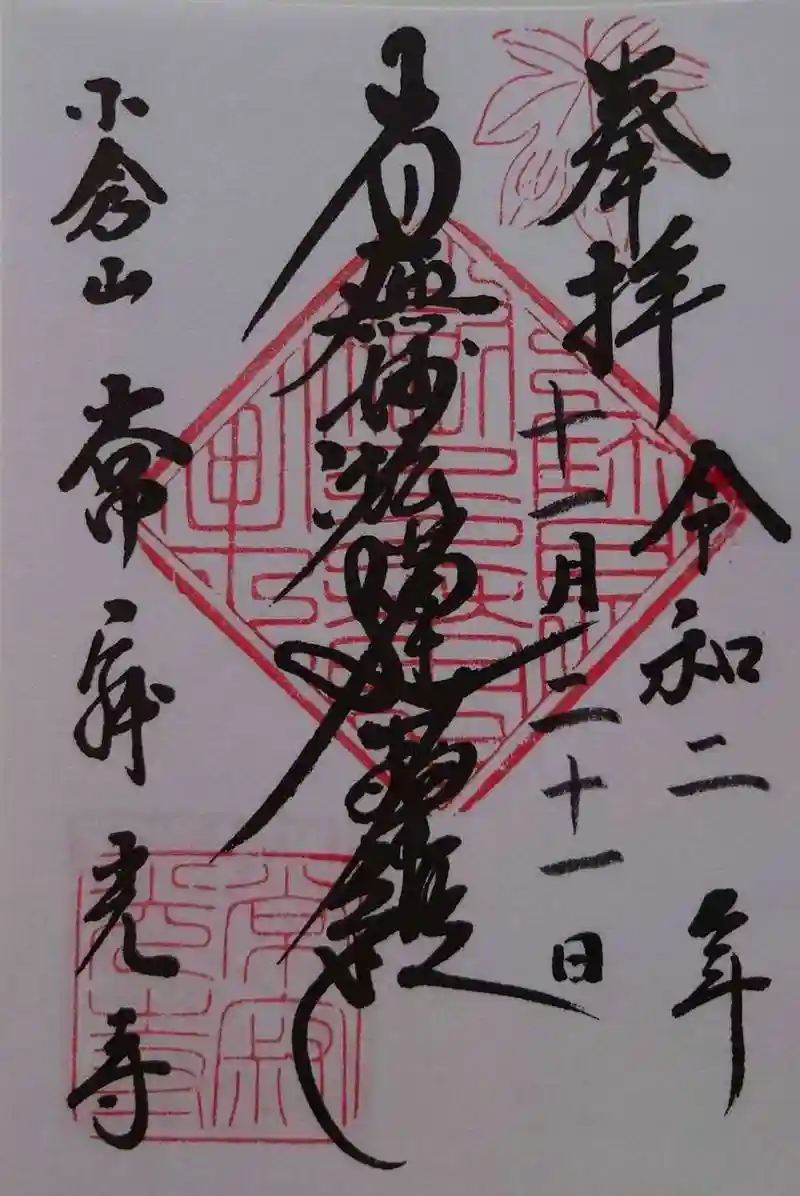 奉拝
令和二年
十一月二十一日
南無妙法蓮華経
小倉山 常寂光寺
常寂光寺